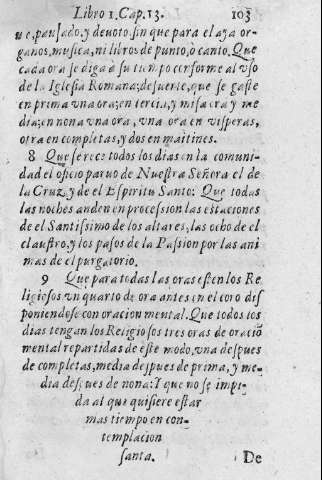 Libro 1. Cap. 13. 103
ue, pausado, y devoto sin que para el aya or-
ganos, musica, ni libros de punto, ò canto. Que
cada ora se diga à su tiempo conforme al vso
de la Iglesia Romana; desuerte, que se gaste
en prima vna ora; en tercia, y missa ora y me
dia; en nona vna ora, vna ora en visperas,
otra en completas, y dos en maitines.
8 Que se rece todos los dias en la comuni-
dad el oficio paruo de Nuestra Señora el de
la Cruz, y de el Espiritu Santo: Que todas
las noches anden en procession las estaciones
de el Santissimo de los altares, las ocho de el
claustro, y los pasos de la Passion por las ani
mas de el purgatorio.
9 Que para todas las oras esten los Re
ligiosos vn quarto de ora antes en el coro dis
poniendose con oracion mental. Que todos los
dias tengan los Religiosos tres oras de oraciō
mental repartidas de este modo, vna despues
de completas, media despues de prima, y me-
dia despues de nona: Y que no se impi-
da al que quisiere estar
mas tiempo en con-
templacion
santa. De